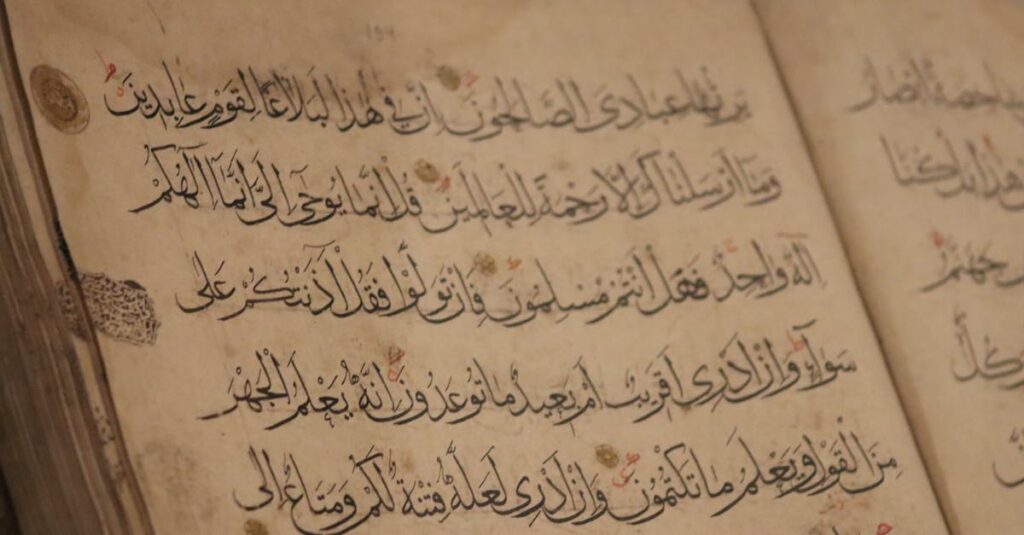 شاخصة ابصار
هذا بل كنا
جهنم
وكل
يَرِثُهَا عِبَادِىَ الصَّالِحُونَ اِنَّ فِي هٰذَا لَبَلَاغًا لِقَوْمٍ عَابِدِينَ
وَمَا أَرْسَلْنَاكَ اِلَّا رَحْمَةً لِلْعَالَمِينَ قُلْ اِنَّمَا يُوحٰى اِلَىَّ اَنَّمَا اِلٰهُكُمْ
اِلٰهٌ وَاحِدٌ فَهَلْ اَنْتُمْ مُسْلِمُونَ فَاِنْ تَوَلَّوْا فَقُلْ اٰذَنْتُكُمْ عَلٰى
سَوَآءٍ وَاِنْ اَدْرِى اَقَرِيبٌ اَمْ بَعِيدٌ مَا تُوعَدُونَ اِنَّهُ يَعْلَمُ الْجَهْرَ
مِنَ الْقَوْلِ وَيَعْلَمُ مَا تَكْتُمُونَ وَاِنْ اَدْرِى لَعَلَّهُ فِتْنَةٌ لَكُمْ وَمَتَاعٌ اِلٰى